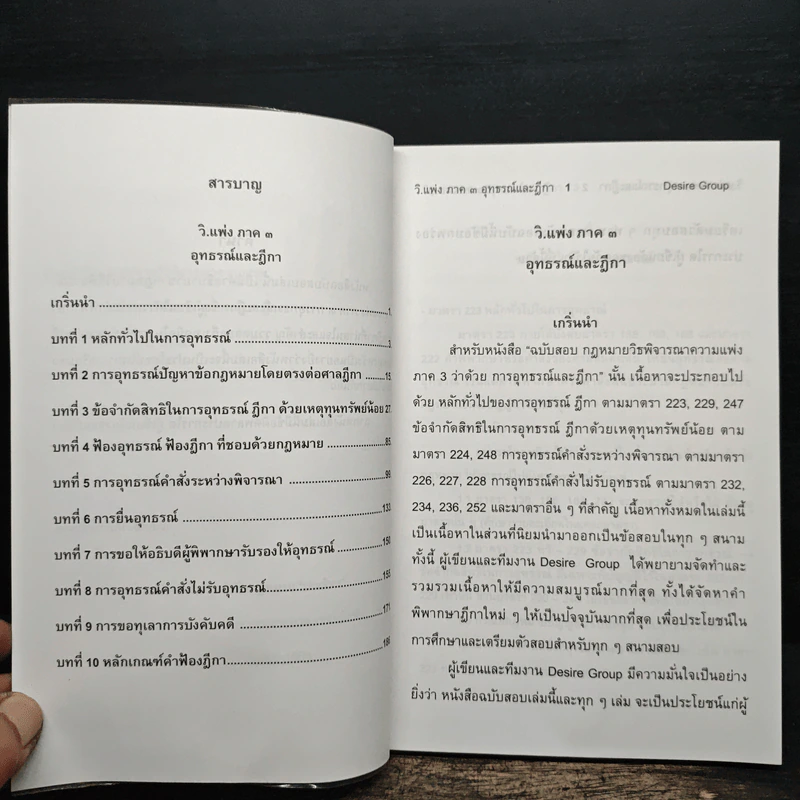 สารบาญ
วิ.แพ่ง ภาค ๓
อุทธรณ์และฎีกา
เกริ่นนำ ........ 1
บทที่ 1 หลักทั่วไปในการอุทธรณ์ ........ 3
บทที่ 2 การอุทธรณ์ปัญหาข้อกฎหมายโดยตรงต่อศาลฎีกา ........
บทที่ 3 ข้อจำกัดสิทธิในการอุทธรณ์ ฎีกา ด้วยเหตุทุนทรัพย์น้อย 27
บทที่ 4 ฟ้องอุทธรณ์ ฟ้องฎีกา ที่ชอบด้วยกฎหมาย ........
บทที่ 5 การอุทธรณ์คำสั่งระหว่างพิจารณา ........ 99
บทที่ 6 การยื่นอุทธรณ์ ........ 133
บทที่ 7 การขอให้อธิบดีผู้พิพากษารับรองให้อุทธรณ์ ........ 150
บทที่ 8 การอุทธรณ์คำสั่งไม่รับอุทธรณ์ ........
บทที่ 9 การขอทุเลาการบังคับคดี ........
บทที่ 10 หลักเกณฑ์คำฟ้องฎีกา ........
วิ.แพ่ง ภาค ๓ อุทธรณ์และฎีกา 1 Desire Group
วิ.แพ่ง ภาค ๓
อุทธรณ์และฎีกา
เกริ่นนำ
สำหรับหนังสือ "ฉบับสอบ กฎหมายวิธพิจารณาความแพ่ง
ภาค 3 ว่าด้วย การอุทธรณ์และฎีกา" นั้น เนื้อหาจะประกอบไป
ด้วย หลักทั่วไปของการอุทธรณ์ ฎีกา ตามมาตรา 223, 229, 247
ข้อจำกัดสิทธิในการอุทธรณ์ ฎีกาด้วยเหตุทุนทรัพย์น้อย ตาม
มาตรา 224, 248 การอุทธรณ์คำสั่งระหว่างพิจารณา ตามมาตรา
226, 227, 228 การอุทธรณ์คำสั่งไม่รับอุทธรณ์ ตามมาตรา 232,
234, 236, 252 และมาตราอื่น ๆ ที่สำคัญ เนื้อหาทั้งหมดในเล่มนี้
เป็นเนื้อหาในส่วนที่นิยมนำมาออกเป็นข้อสอบในทุก ๆ สนาม
ทั้งนี้ ผู้เขียนและทีมงาน Desire Group ได้พยายามจัดทำและ
รวมรวมเนื้อหาให้มีความสมบูรณ์มากที่สุด ทั้งได้จัดหาคำ
พิพากษาฎีกาใหม่ ๆ ให้เป็นปัจจุบันมากที่สุด เพื่อประโยชน์ใน
การศึกษาและเตรียมตัวสอบสำหรับทุก ๆ สนามสอบ
ผู้เขียนและทีมงาน Desire Group มีความมั่นใจเป็นอย่าง
ยิ่งว่า หนังสือฉบับสอบเล่มนี้และทุก ๆ เล่ม จะเป็นประโยชน์แก่ผู้